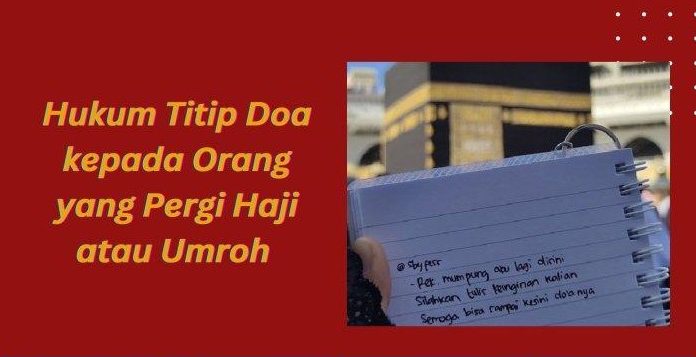 Hukum Titip Doa
kepada Orang
yang Pergi Haji
atau Umroh
@sbyfess
- Rek mumpung aku lagi disini
Silahkan tulis keinginan kalian
Semoga bisa sampai kesini doa nya